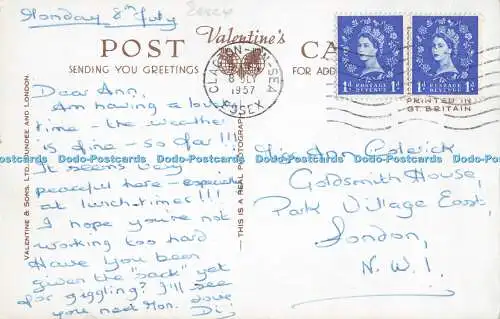 Monday 8th July
POST
Valentine's
CA
SENDING YOU GREETINGS
FOR ADD
CLACTON-ON-SEA
8 JLY
1957
ESSEX
POSTAGE
REVENUE
1D
1D
POSTAGE
REVENUE
1D
1D
PRINTED IN
GT. BRITAIN
Dear Ann,
Am having a
time – the weather
is fine – so far!!!
It seems very
peaceful here – especially
at lunch-times!!!
I hope you're not
working too hard
Have you been
given the "sack" yet
for giggling? I'll see
you next Mon. Love
Di
Miss Ann
Goldsmith House,
Park Village East,
London,
N.W.1.
VALENTINE & SONS. LTD. DUNDEE AND LONDON.
—THIS IS A REAL PHOTOGRAPH
Dodo-Postcards Dodo-Postcards Dodo-Postcards Dodo-Postcards Dodo-Postcards Dodo-Postcards